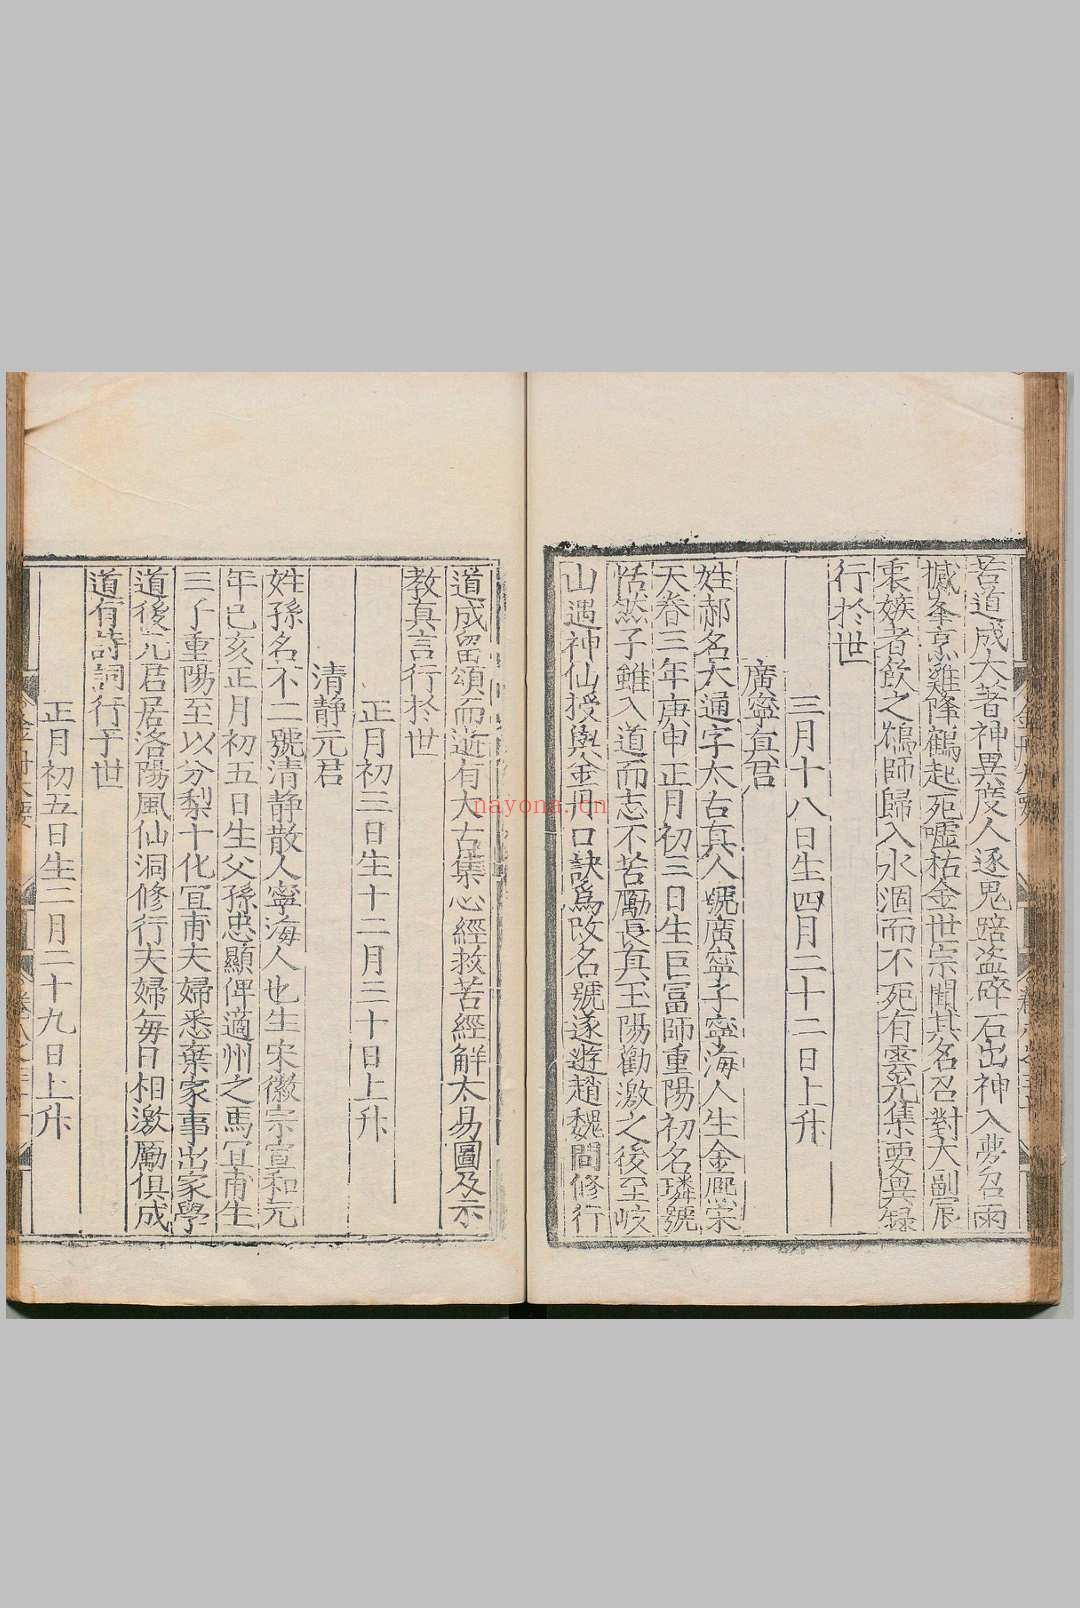 苦道成大著神異度人逐鬼踣盗碎石出神入夢召雨
撼峯烹雞降鶴起死噓枯金世宗聞其名召對大副宸
衷嫉者飲之鴆師歸入水涸而不死有雲光集要異録
行於世
三月十八日生四月二十二日上升
廣寧真君
姓郝名大通字太古真人號廣寧子寧海人生金熙宗
天眷三年庚申正月初三日生巨富師重陽初名璘號
恬然子雖入道而志不苦厲長真玉陽勸激之後至岐
山遇神仙授與金丹口訣爲改名號遂遊趙魏間修行
道成留頌而逝有太古集心經救苦經解太易圖及示
教真言行於世
正月初三日生十二月三十日上升
清静元君
姓孫名不二號清静散人寧海人也生宋徽宗宣和元
年己亥正月初五日生父孫忠顯俾適州之馬宜甫生
三子重陽至以分梨十化宜甫夫婦悉棄家事出家學
道後元君居洛陽風仙洞修行夫婦每日相激勵俱成
道有詩詞行于世
正月初五日生二月二十九日上升
nayona.cn